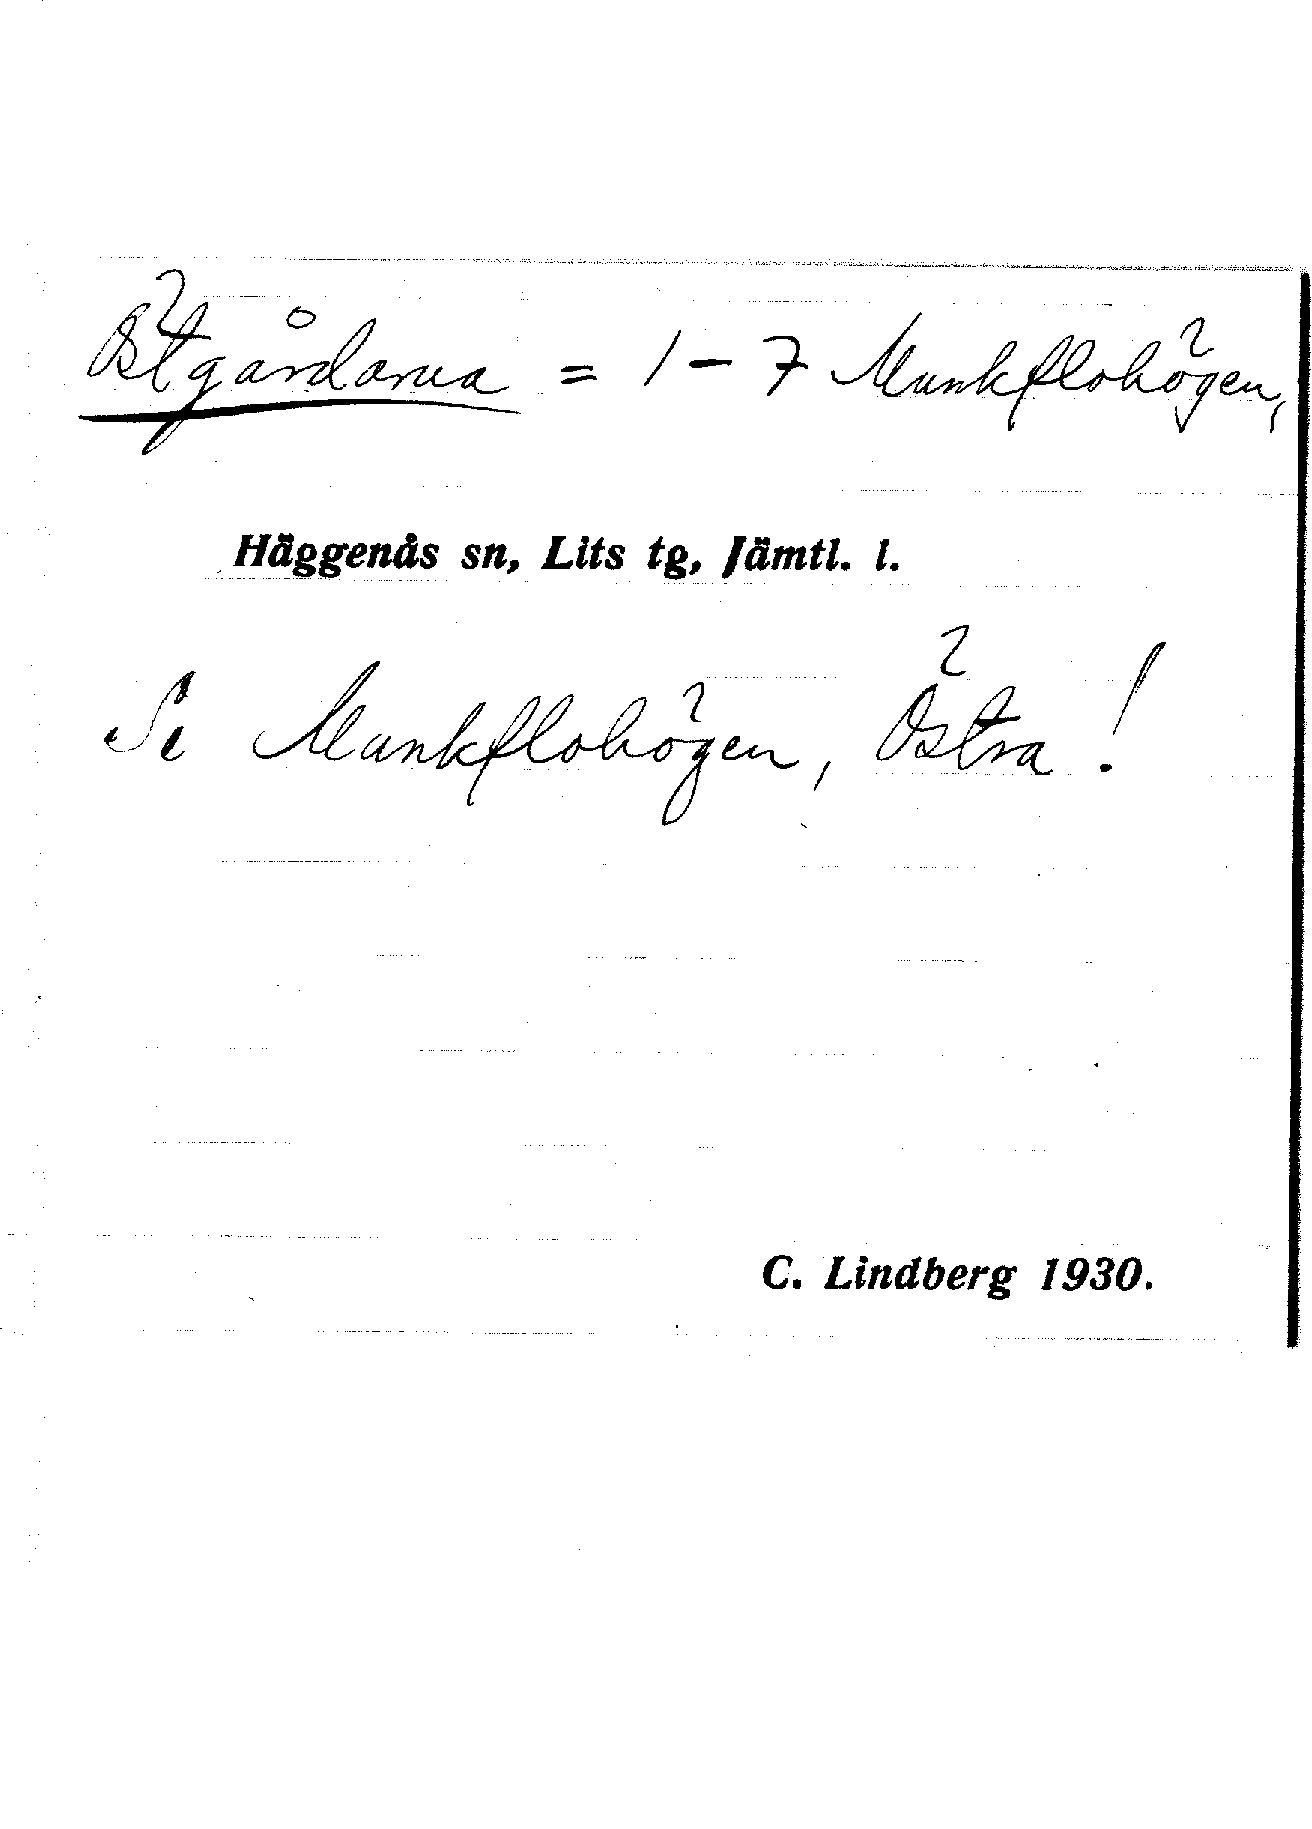 Östgårdarna = 1 - 7 Munkflohögen,
Häggenås sn, Lits tg, Jämtl. l.
Se Munkflohögen, Östra!
C. Lindberg 1930.